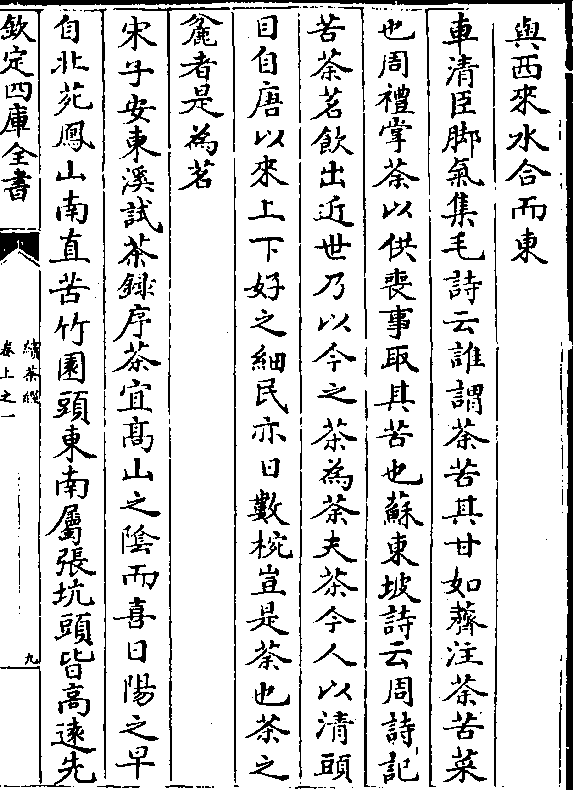 與西來水合而東
車清臣脚氣集毛詩云誰謂荼苦其甘如薺注荼苦菜
也周禮掌荼以供喪事取其苦也蘇東坡詩云周詩記
苦荼茗飲出近世乃以今之茶為荼夫茶今人以清頭
目自唐以來上下好之細民亦日數椀豈是荼也茶之
麄者是為茗
宋子安東溪試茶録序茶宜髙山之陰而喜日陽之早
自北苑鳳山南直苦竹園頭東南屬張坑頭皆高逺先
欽定四庫全書
續茶經
卷上之一
九